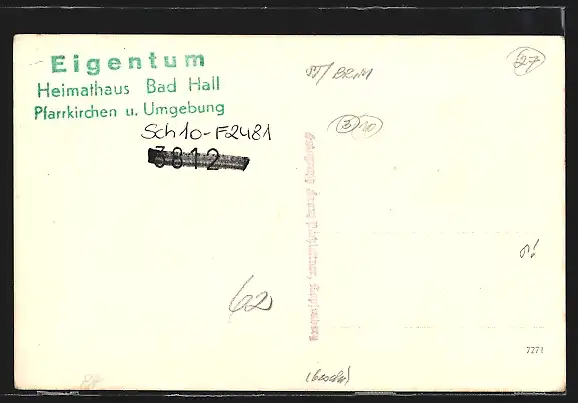 Eigentum
Heimathaus Bad Hall
Pfarrkirchen u. Umgebung
Sch10-F2481
3812
62
27
2 10
(besch)
7271